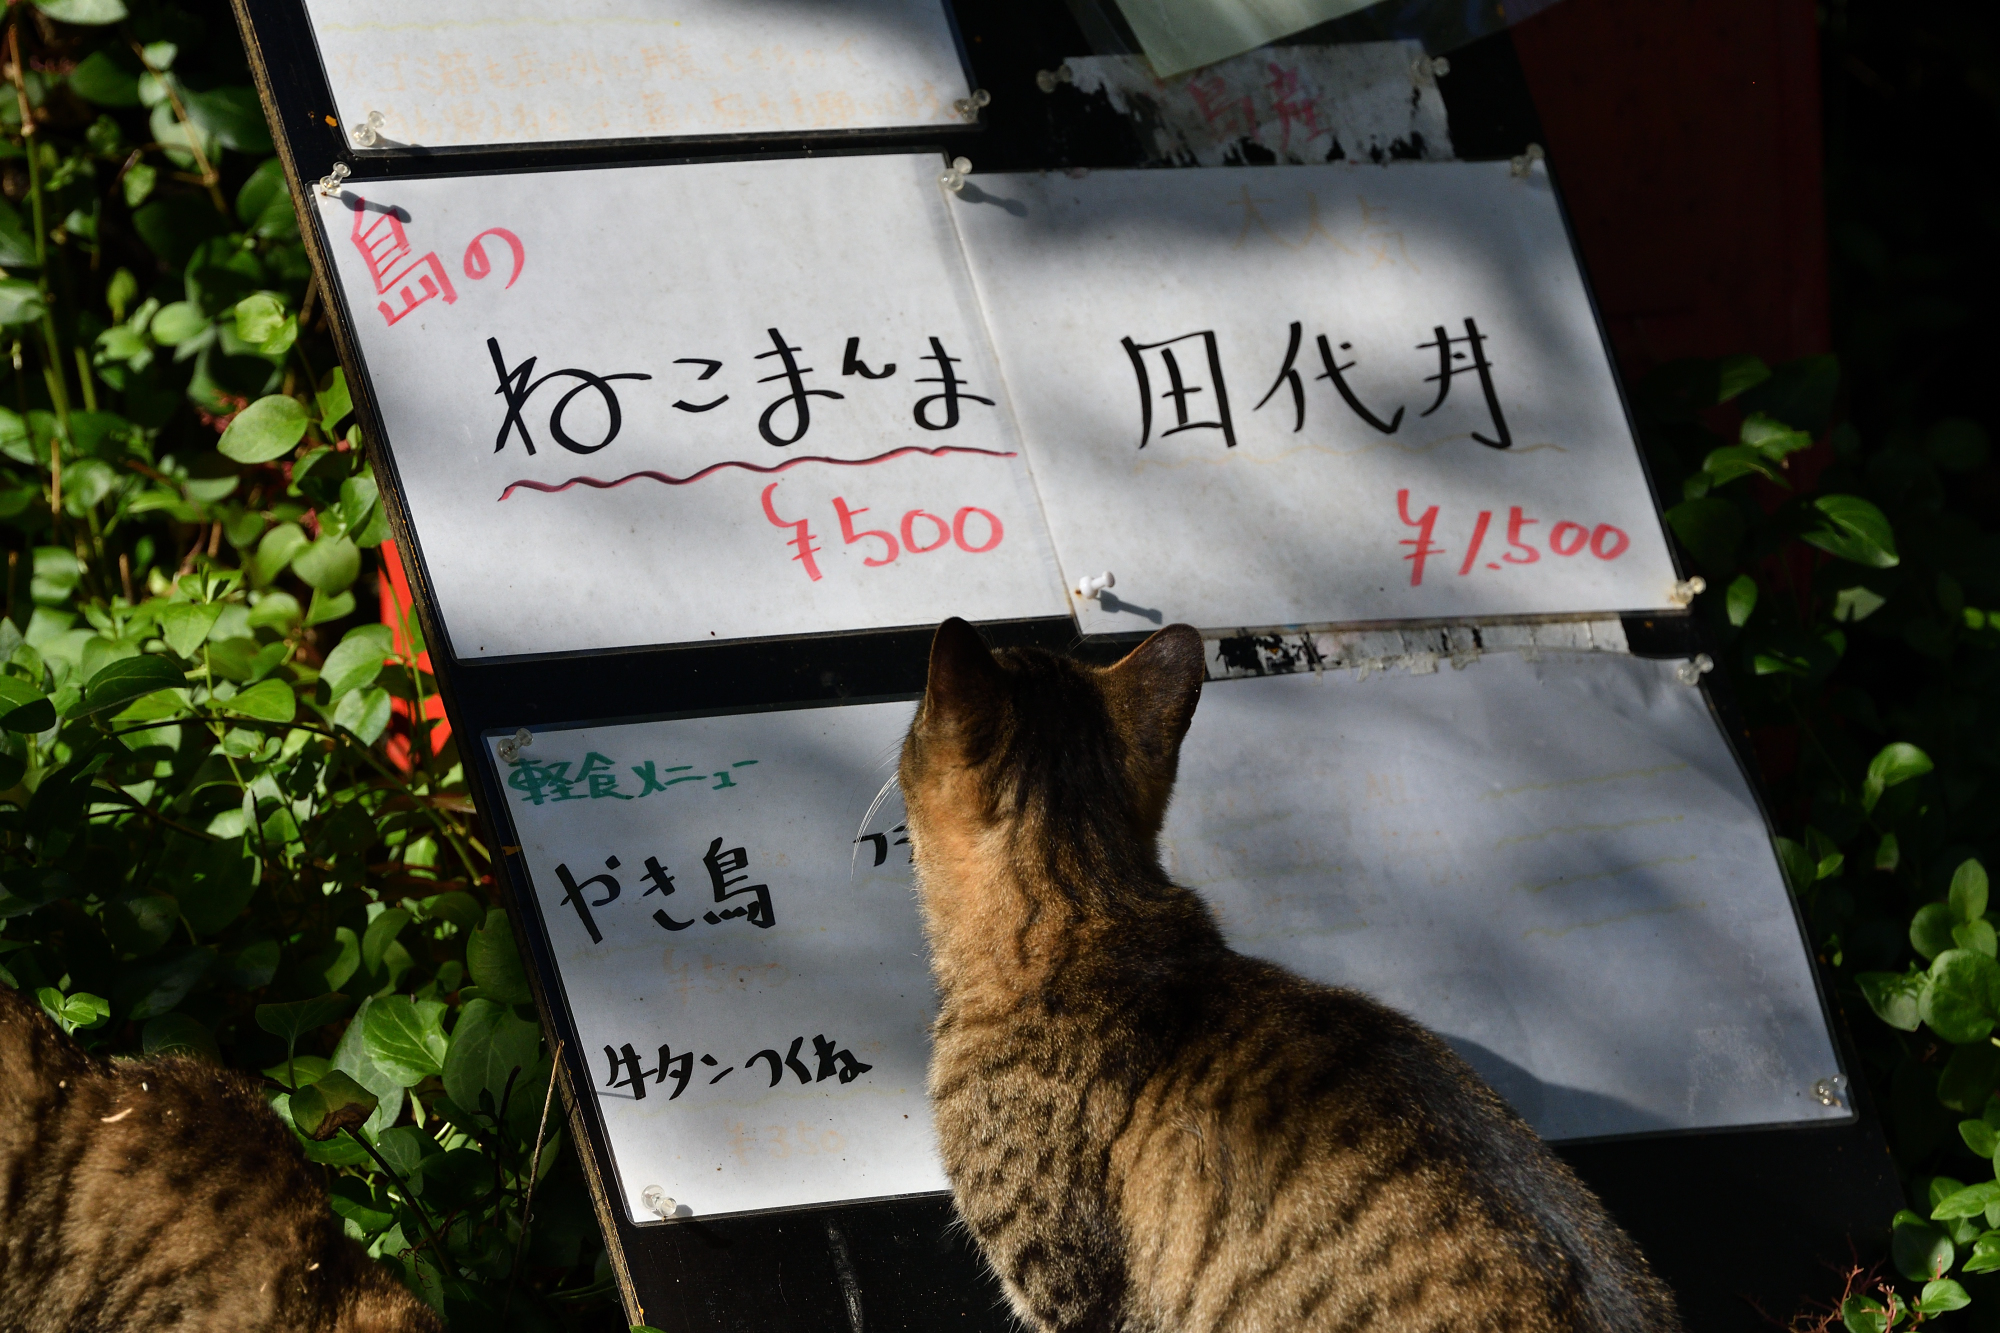 島産
島の
ねこまんま
¥500
大人気
田代丼
¥1,500
軽食メニュー
やき鳥
¥500
牛タンつくね
¥350